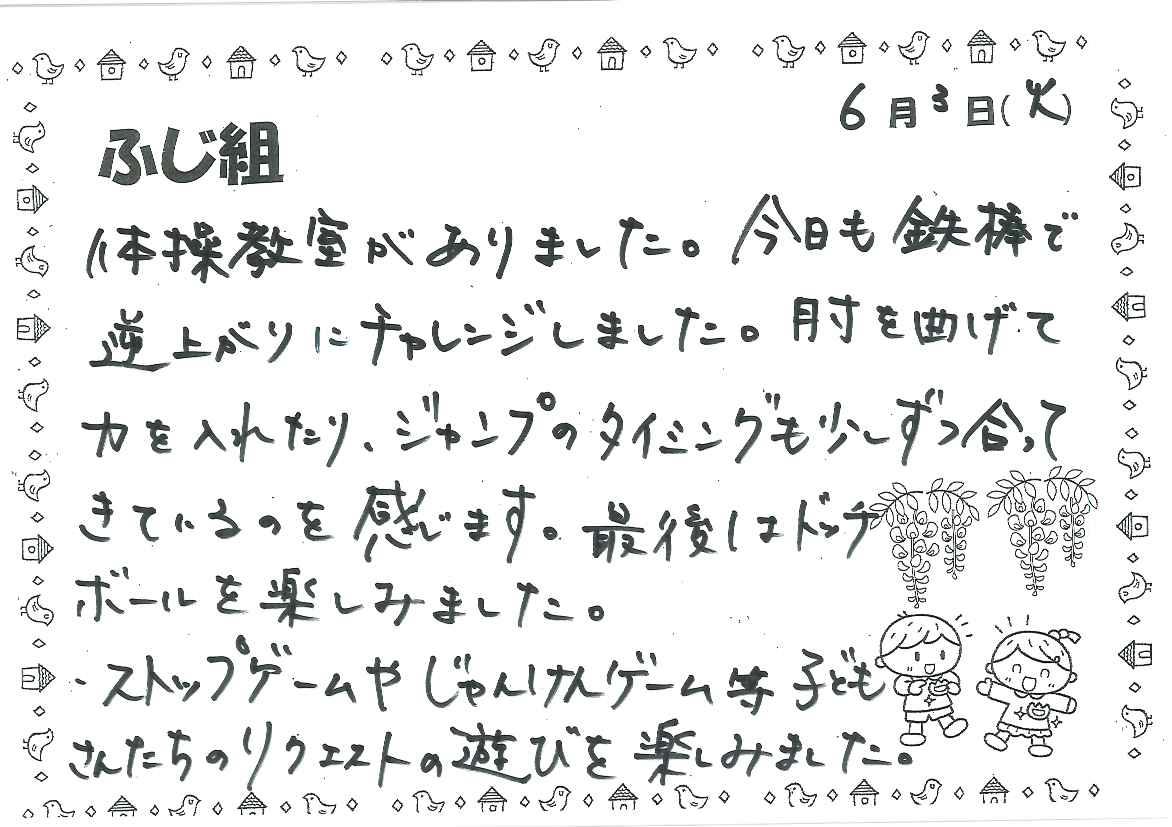 6月3日(火)
ふじ組
体操教室がありました。今日も鉄棒で
逆上がりにチャレンジしました。肘を曲げて
力を入れたり、ジャンプのタイミングも少しずつ合って
きているのを感じます。最後はドッチ
ボールを楽しみました。
・ストップゲームやじゃんけんゲーム等子ども
さんたちのリクエストの遊びを楽しみました。